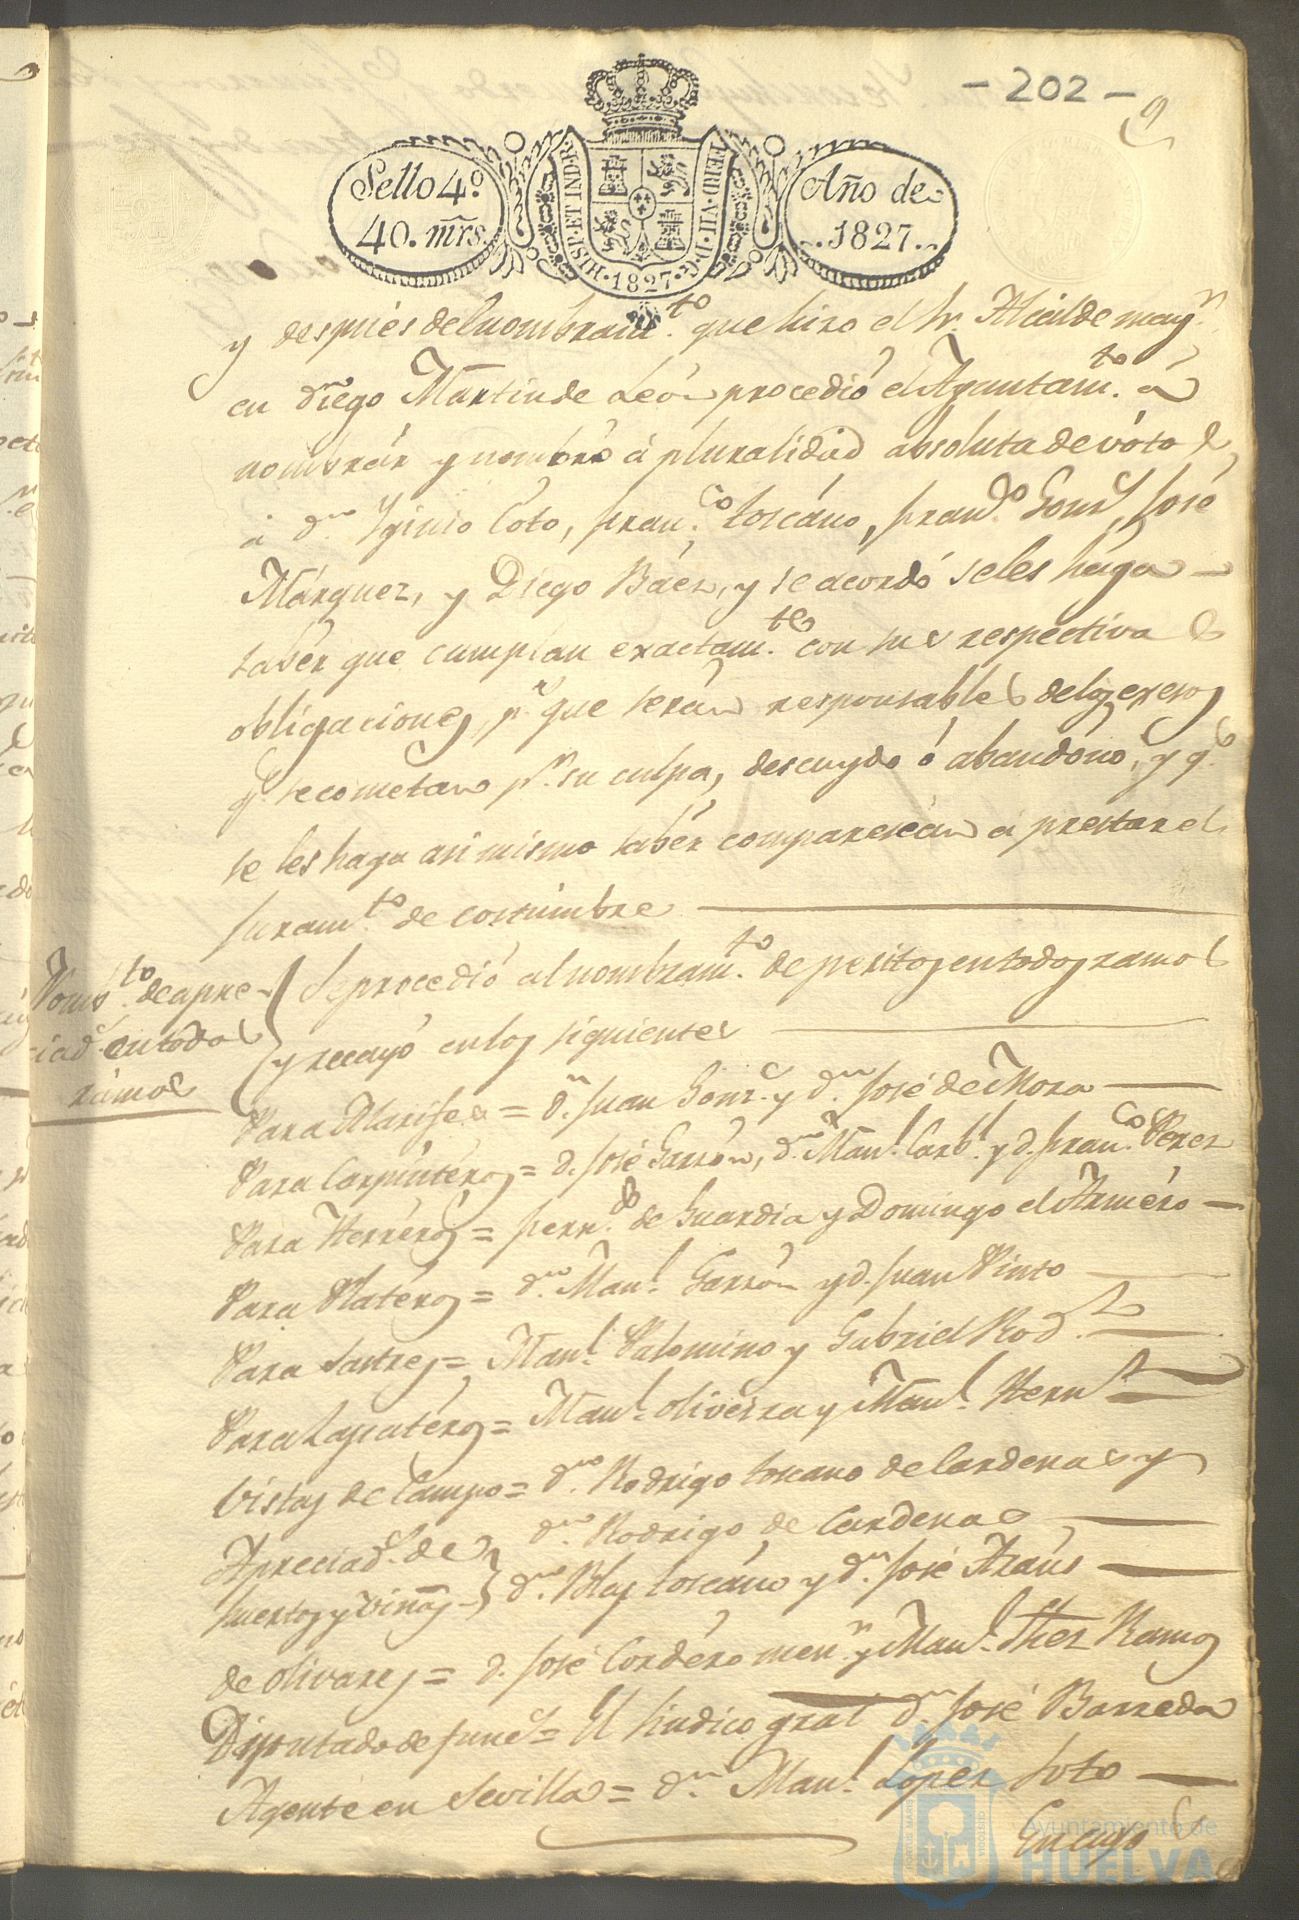 - 202 -
9
Sello 4º
40. mrs.
HISP. ET IND. R.
FERD. VII. D. G.
1827
Año de
1827.
y despues del nombram.to que hizo el Sr. Alcalde may.r
en Diego Martin de Leon procedió el Ayuntam.to á
nombrár y nombró á pluralidad absoluta de votos
á d.n Yginio Coto, Fran.co Toscáno, Fran.co Gonz.z José
Márquez, y Diego Báez, y se acordó seles hága
saber que cumplan exactam.te con sus respectivas
obligaciones, p.r que serán responsables delos exesos
q.e se cometan p.r su culpa, descuydo ó abandóno, y q.e
se les haga asi mismo sabér comparescan á prestar el
juram.to de costumbre
Nomb.to de apre-
ciad.s en todos
rámos
Se procedió al nombram.to de peritos en todos ramos
y recayó en los siguientes
Para Alarifes = d.n Juan Gonz.z y d.n José de Mora
Para Carpintéros = d. José Garzón, d.n Man.l Carb.l y d. Fran.co Perez
Para Herréros = Fern.do de Guardia y Domingo el Arméro
Para Platéros = d.n Man.l Garzón y d. Juan Pinto
Para Sastres = Man.l Palomino y Gabriel Rod.z
Para Zapatéros = Man.l Oliveira y Man.l Hern.z
Vistas de Campo = d.n Rodrigo Toscano de Cardenas y
d.n Rodrigo de Cardenas
Apreciad.s de
huertos y viñas
d.n Blas Toscáno y d.n José Azáus
de Olivares = d. José Cordéro men.r y Man.l Ramos
Diputado de = El Sindico gral d.n José Barreda
Agente en Sevilla = d.n Man.l Lopez Soto
En cuyo
Ayuntamiento de
HUELVA